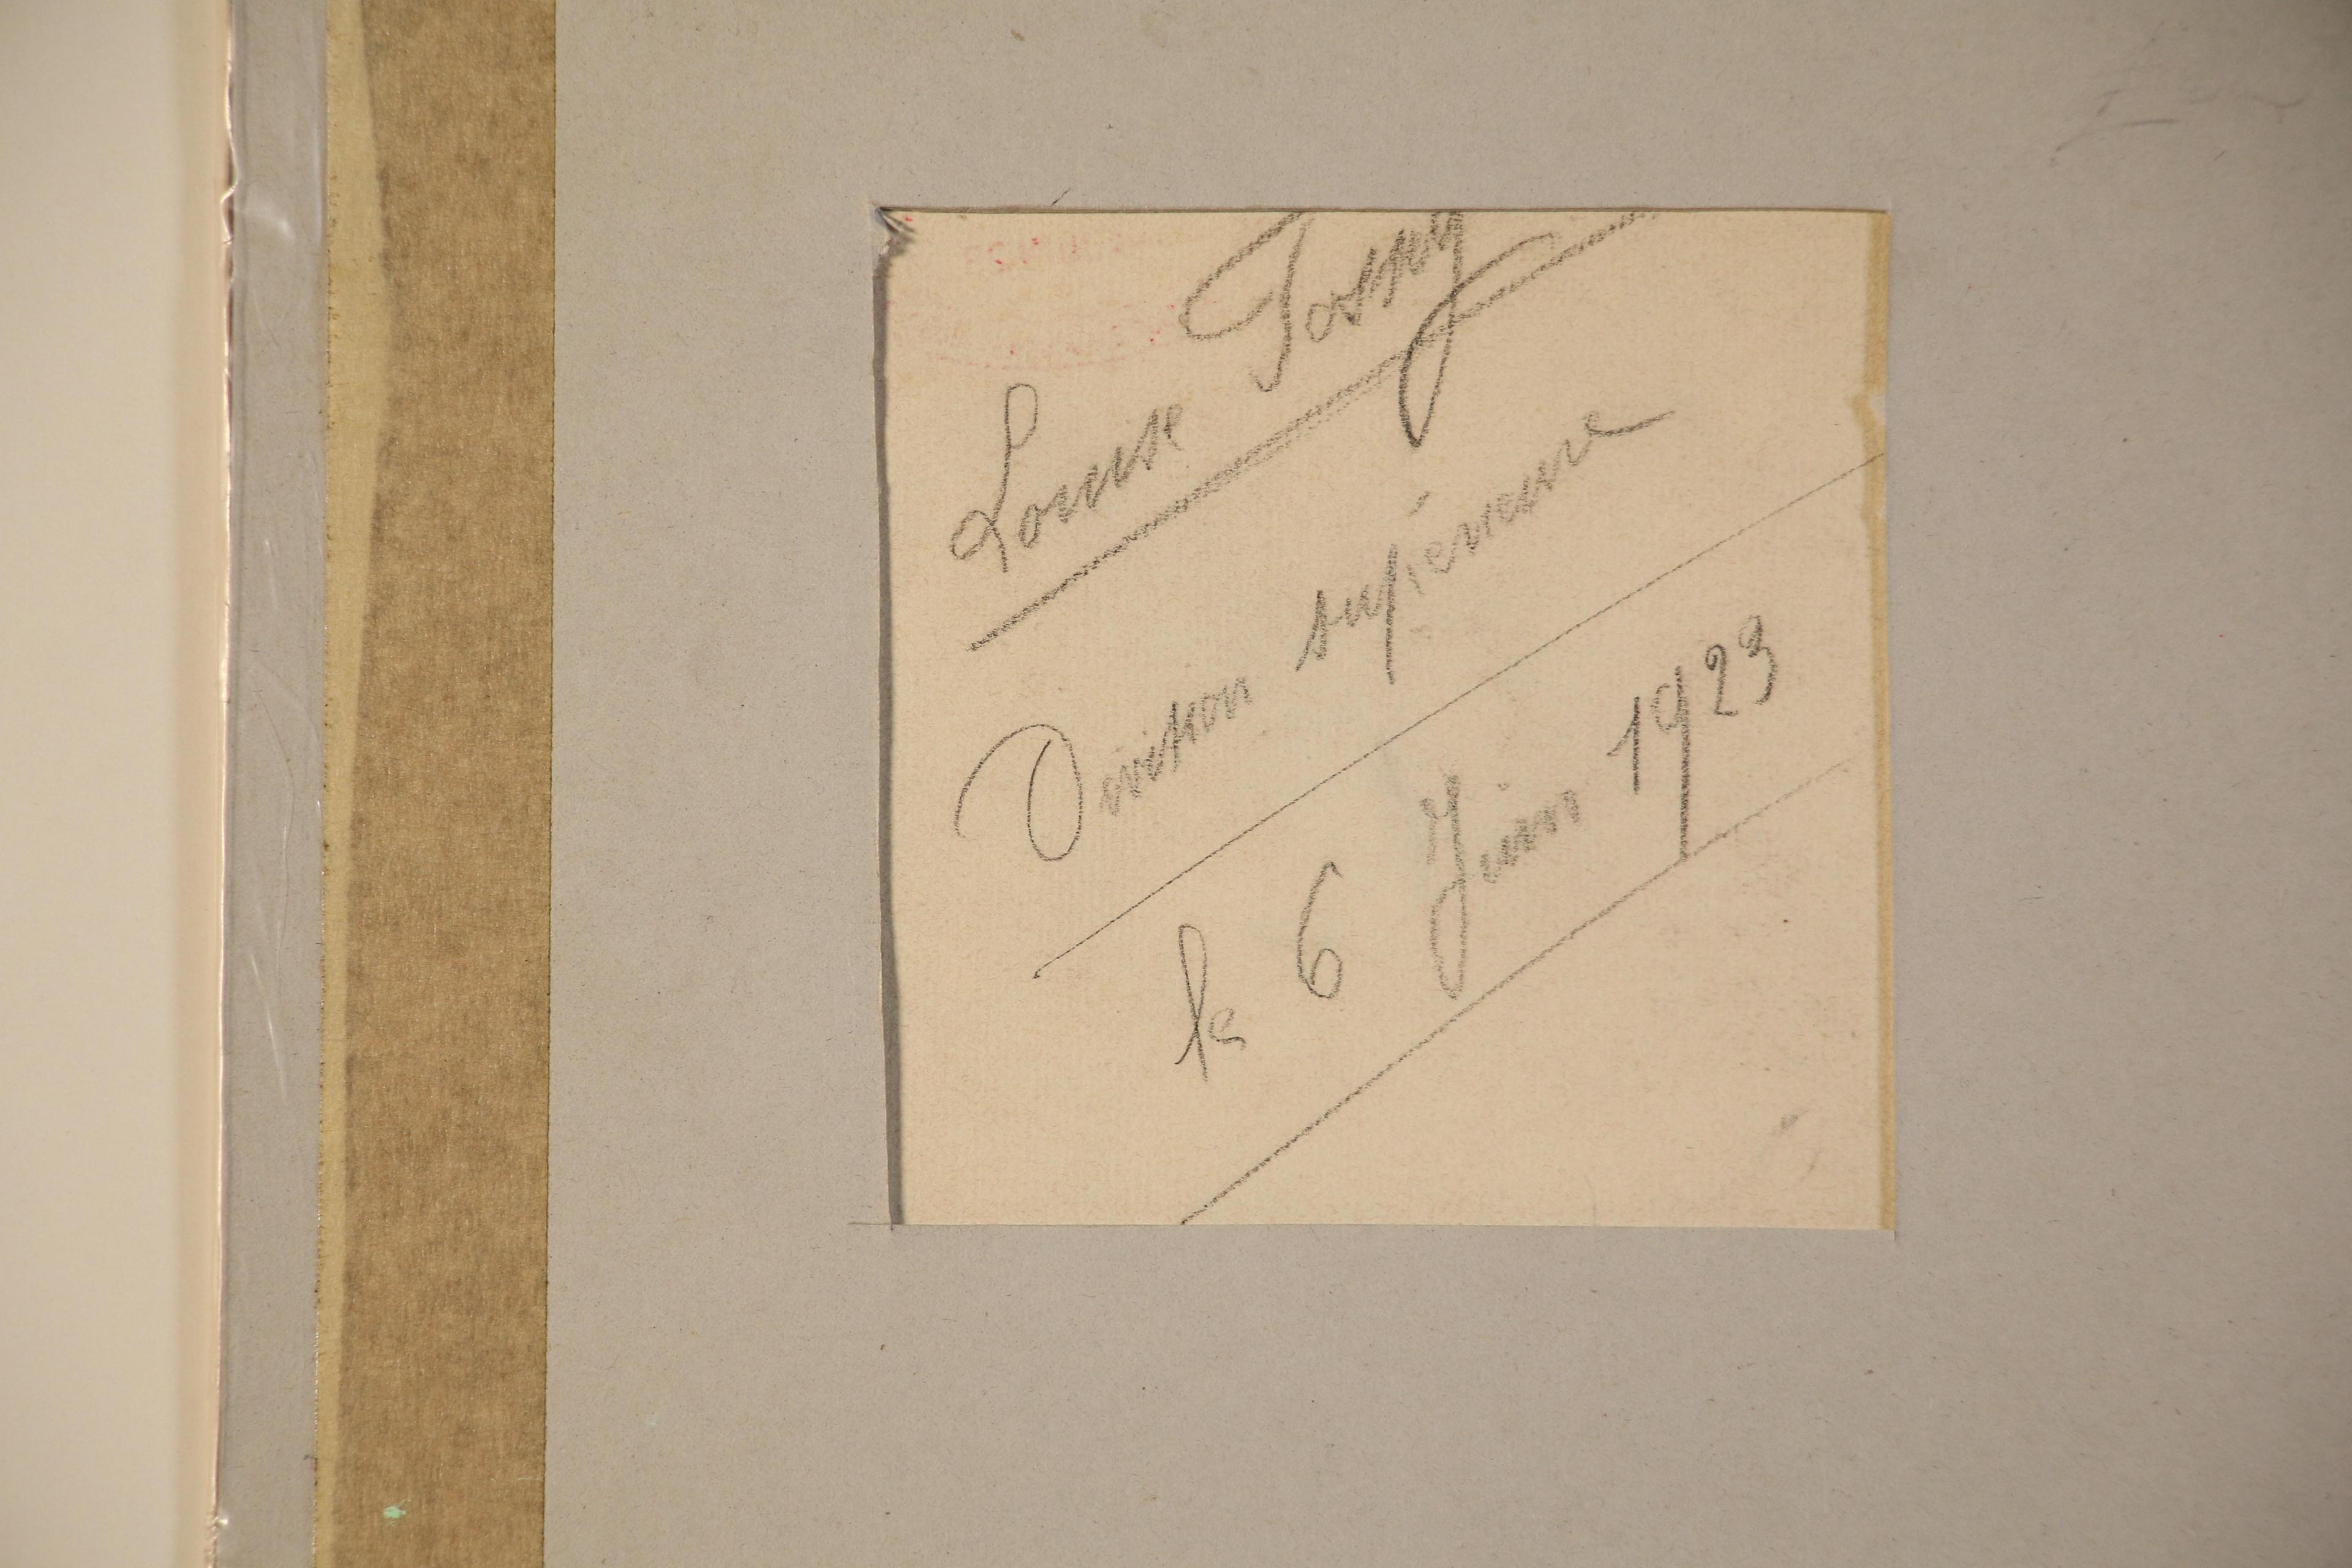 Louise Tossy
Division supérieure
le 6 Juin 1923